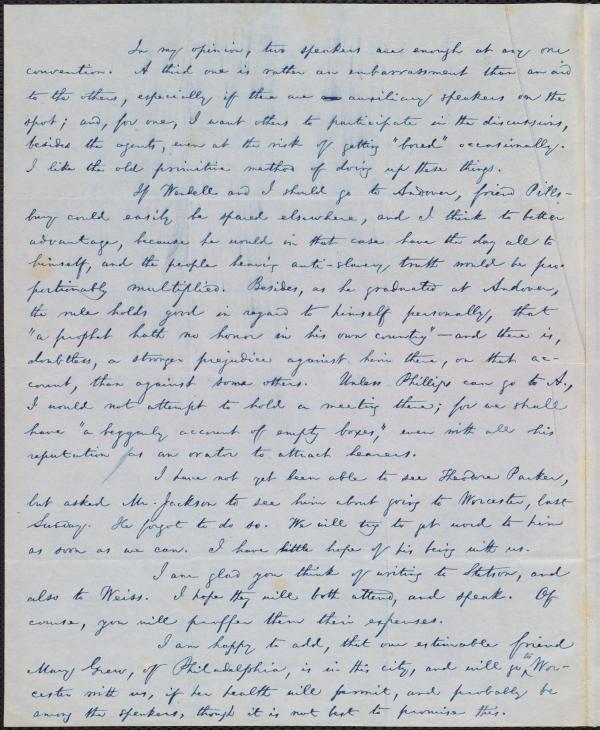 In my opinion, two speakers are enough at any one
convention. A third one is rather an embarrassment than an aid
to the others, especially if there are auxiliary speakers on the
spot; and, for one, I want others to participate in the discussion,
besides the agents, even at the risk of getting "bored" occasionally.
I like the old primitive method of doing up these things.
If Wendell and I should go to Andover, friend Pills-
bury could easily be spared elsewhere, and I think to better
advantage, because he would in that case have the day all to
himself, and the people hearing anti-slavery truth would be pro-
portionably multiplied. Besides, as he graduated at Andover,
the rule holds good in regard to himself personally, that
"a prophet hath no honor in his own country"—and there is,
doubtless, a stronger prejudice against him there, on that ac-
count, than against some others. Unless Phillips can go to A.,
I would not attempt to hold a meeting there; for we shall
have "a beggarly account of empty boxes," even with all his
reputation as an orator to attract hearers.
I have not yet been able to see Theodore Parker,
but asked Mr. Jackson to see him about going to Worcester, last
Sunday. He forgot to do so. We will try to get word to him
as soon as we can. I have little hope of his being with us.
I am glad you think of writing to Stetson, and
also to Weiss. I hope they will both attend, and speak. Of
course, you will proffer them their expenses.
I am happy to add, that our estimable friend
Mary Grew, of Philadelphia, is in this city, and will go to Wor-
cester with us, if her health will permit, and probably be
among the speakers, though it is not best to promise this.